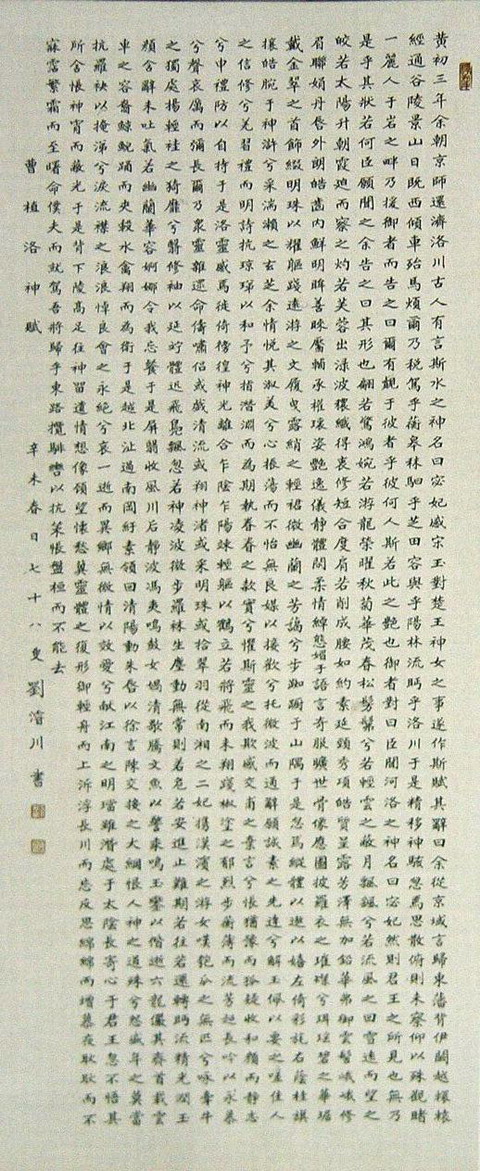 黄初三年余朝京師還濟洛川古人有言斯水之神名曰宓妃感宗玉對楚王神女之事遂作斯賦其辭曰余從京域言歸東藩背伊闕越轘轅
經通谷陵景山日既西傾車殆馬煩爾乃税駕乎蘅皋秣駟乎芝田容與乎陽林流眄乎洛川于是精移神駭忽焉思散俯則未察仰以殊觀睹
一麗人于岩之畔乃援御者而告之曰爾有覿于彼者乎彼何人斯若此之艷也御者對曰臣聞河洛之神名曰宓妃然則君王之所見也無乃
是乎其狀若何臣願聞之余告之曰其形也翩若驚鴻婉若游龍榮曜秋菊華茂春松髣髴兮若輕雲之蔽月飄飖兮若流風之回雪遠而望之
皎若太陽升朝霞迫而察之灼若芙蓉出淥波穠纖得衷修短合度肩若削成腰如約素延頸秀項皓質呈露芳澤無加鉛華弗御雲髻峨峨修
眉聯娟丹唇外朗皓齒内鮮明眸善睞靨輔承權瓌姿艷逸儀静體閑柔情綽態媚于語言奇服曠世骨像應圖披羅衣之璀璨兮珥瑶碧之華琚
戴金翠之首飾綴明珠以耀軀踐遠游之文履曳霧綃之輕裾微幽蘭之芳藹兮步踟躕于山隅于是忽焉縱體以遨以嬉左倚彩旄右蔭桂旗
攘皓腕于神滸兮采湍瀨之玄芝余情悦其淑美兮心振蕩而不怡無良媒以接歡兮托微波而通辭願誠素之先達兮解玉佩以要之嗟佳人
之信修兮羌習禮而明詩抗瓊珶以和予兮指潜淵而為期執眷眷之款實兮懼斯靈之我欺感交甫之棄言兮悵猶豫而狐疑收和顔而静志
兮申禮防以自持于是洛靈感焉徙倚徬徨神光離合乍陰乍陽竦輕軀以鶴立若將飛而未翔踐椒塗之郁烈步蘅薄而流芳超長吟以永慕
兮聲哀厲而彌長爾乃衆靈雜遝命儔嘯侶或戲清流或翔神渚或采明珠或拾翠羽從南湘之二妃携漢濱之游女嘆匏瓜之無匹兮咏牽牛
之獨處揚輕袿之猗靡兮翳修袖以延佇體迅飛鳧飄忽若神凌波微步羅袜生塵動無常則若危若安進止難期若往若還轉眄流精光潤玉
顔含辭未吐氣若幽蘭華容婀娜令我忘餐于是屏翳收風川后静波馮夷鳴鼓女媧清歌騰文魚以警乘鳴玉鸞以偕逝六龍儼其齊首載雲
車之容裔鯨鯢踴而夾轂水禽翔而為衛于是越北沚過南岡紆素領回清陽動朱唇以徐言陳交接之大綱恨人神之道殊兮怨盛年之莫當
抗羅袂以掩涕兮淚流襟之浪浪悼良會之永絶兮哀一逝而異鄉無微情以效愛兮獻江南之明璫雖潜處于太陰長寄心于君王忽不悟其
所舍悵神宵而蔽光于是背下陵高足往神留遺情想像顧望懷愁冀靈體之復形御輕舟而上溯浮長川而忘反思綿綿而增慕夜耿耿而不
寐霑繁霜而至曙命僕夫而就駕吾將歸乎東路攬騑轡以抗策悵盤桓而不能去
曹植洛神賦 辛未春日七十八叟劉濬川書